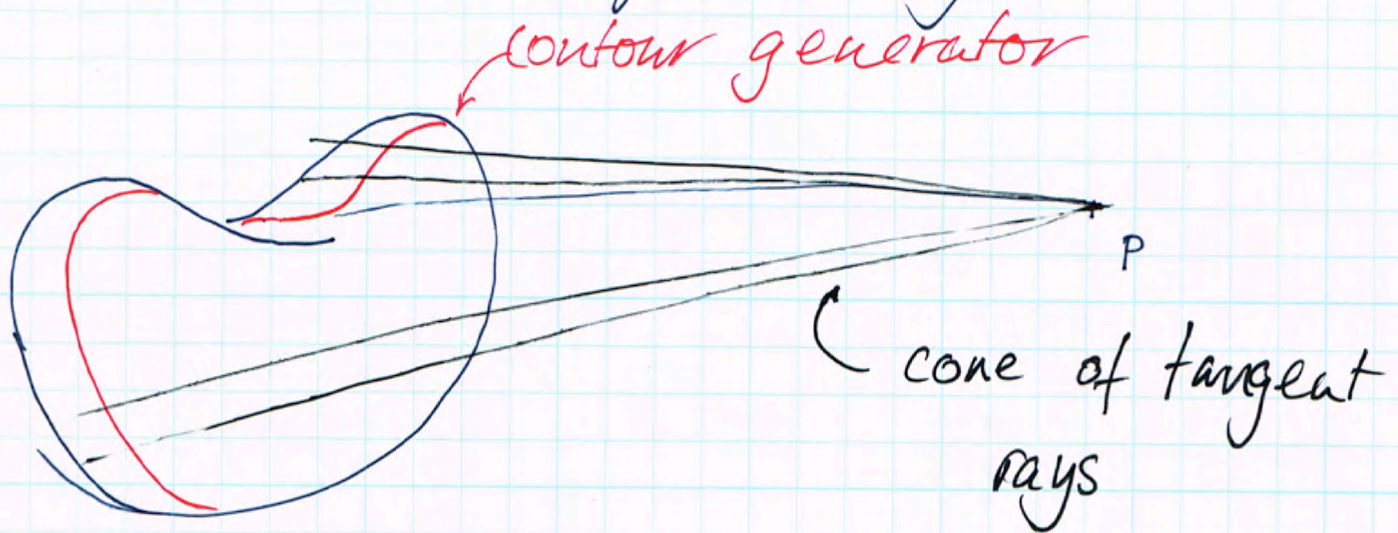 contour generator
P
cone of tangent
rays